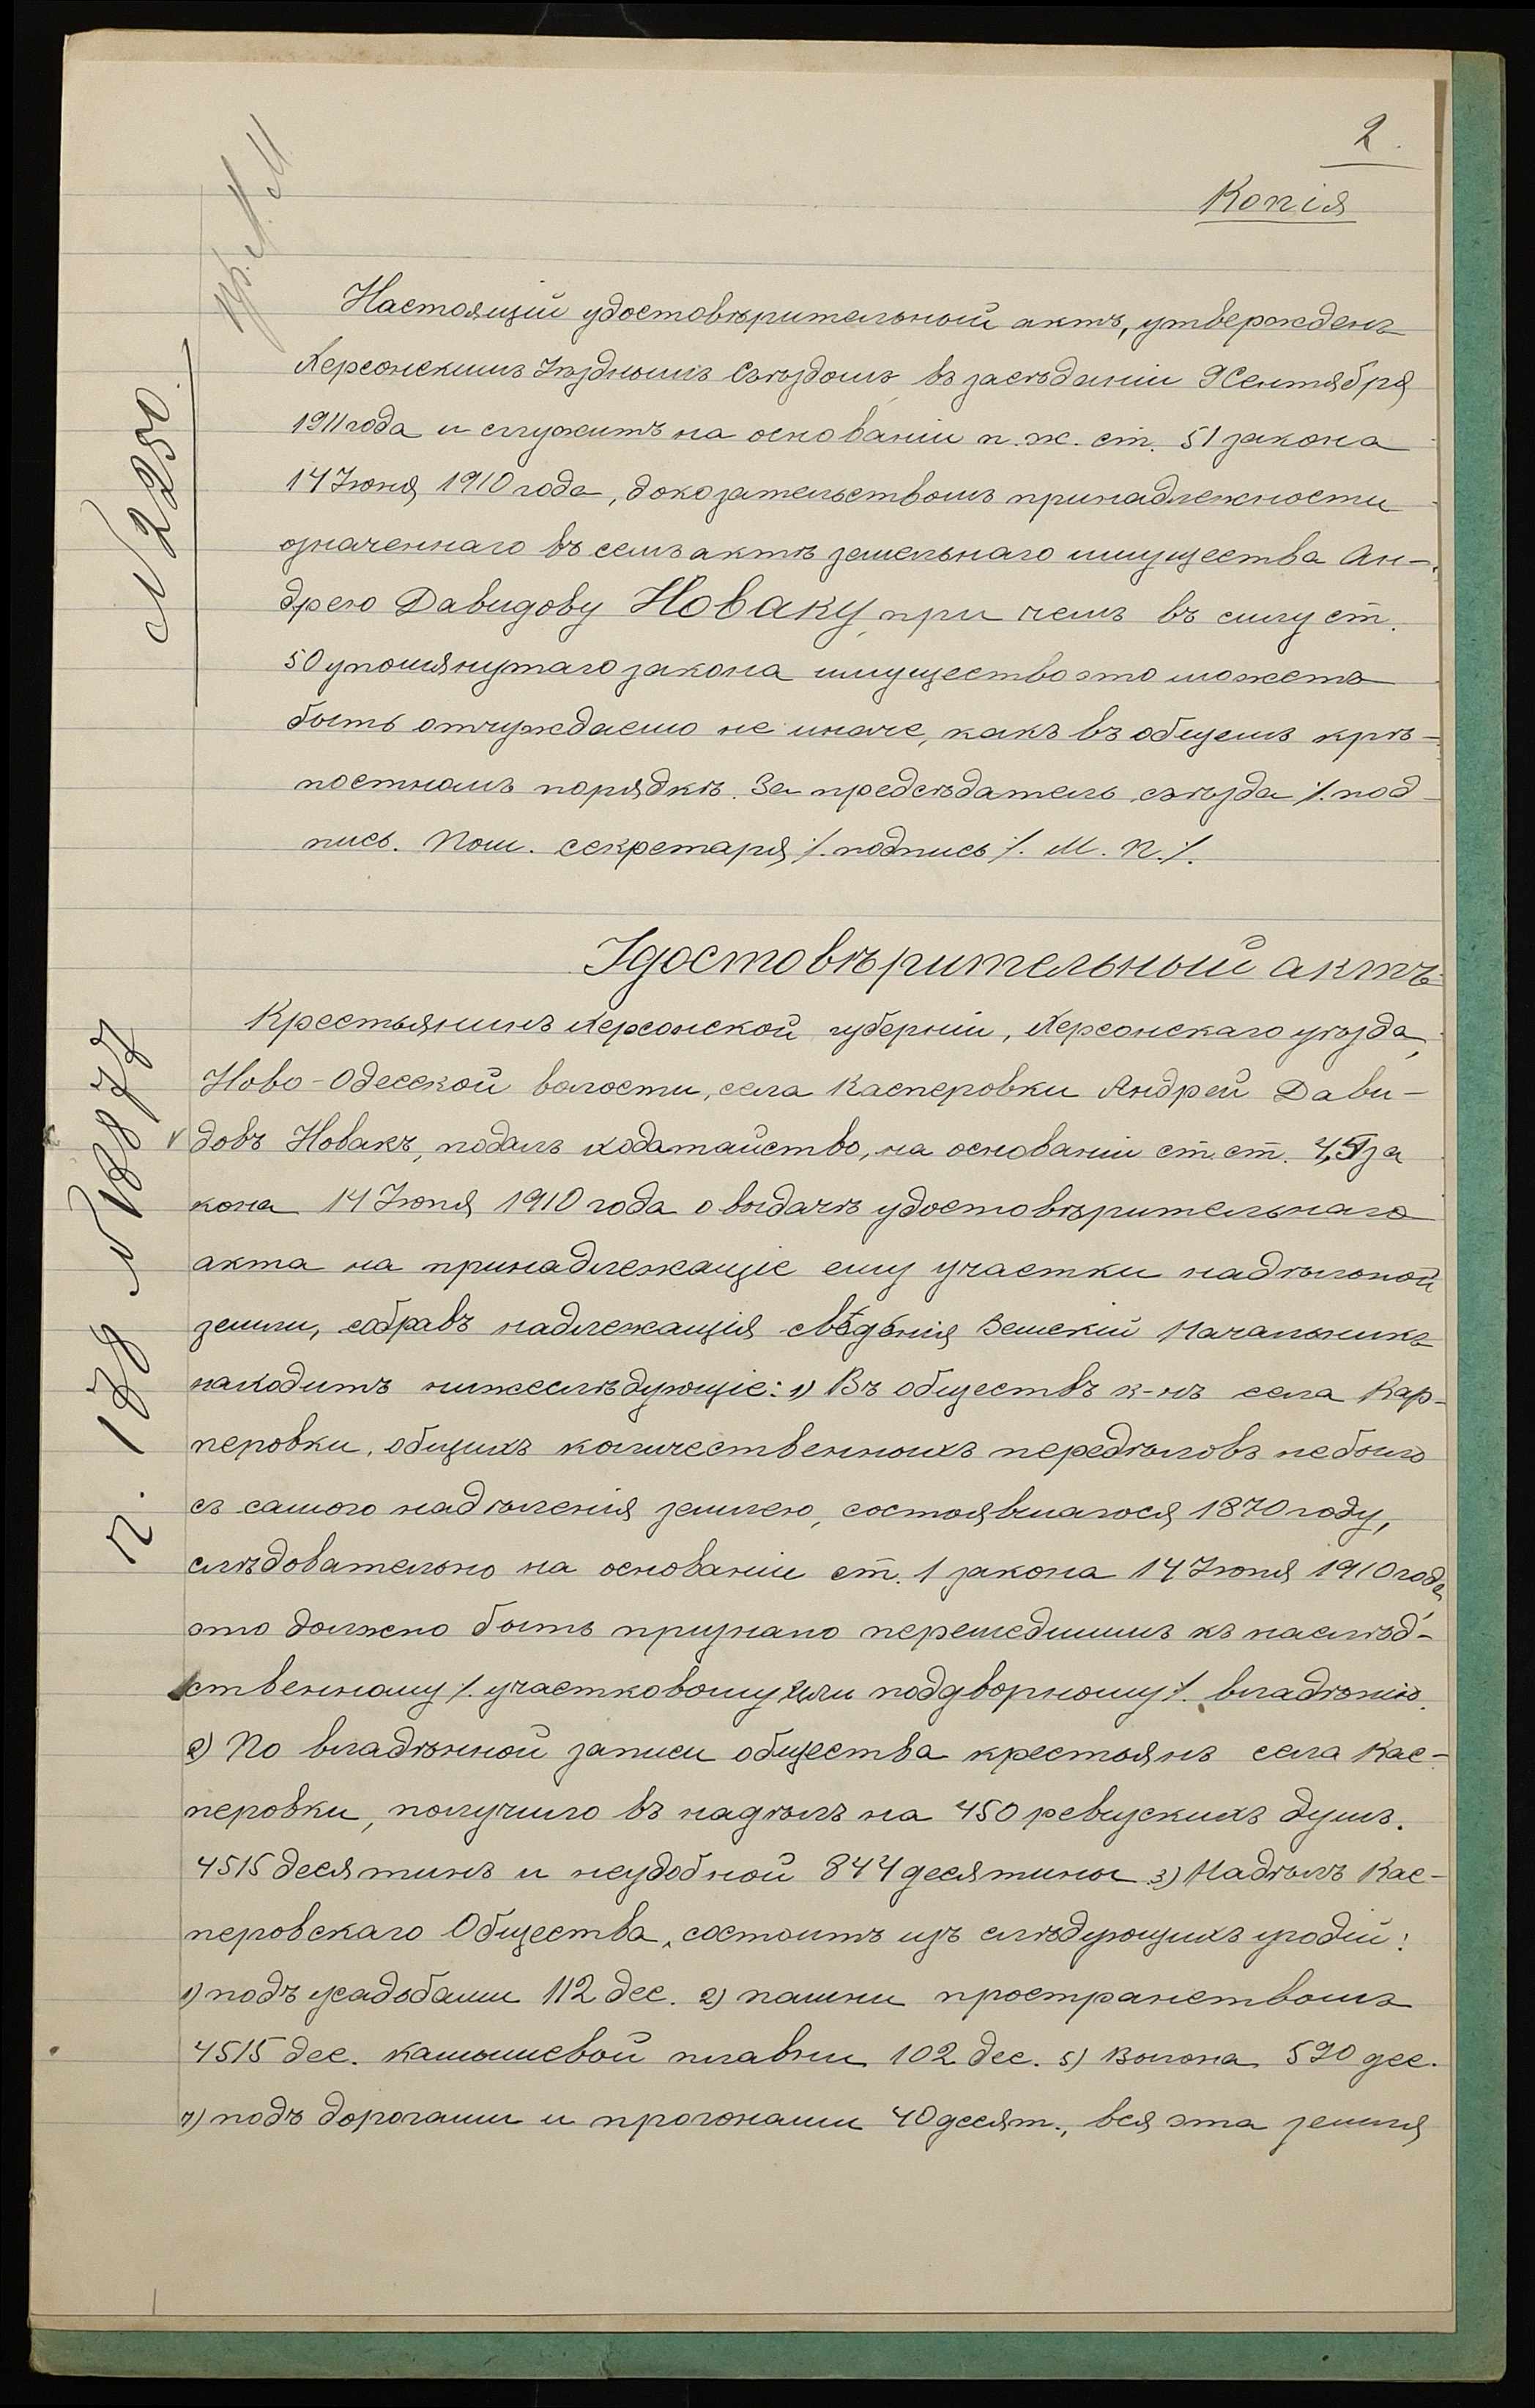 2.
Копія
№ 2250.
Настоящій удостовѣрительный актъ, утвержденъ
Херсонскимъ Уѣзднымъ Съѣздомъ, въ засѣданіи 9 Сентября
1911 года и служитъ на основаніи п. ж. ст. 51 закона
14 Іюня 1910 года, доказательствомъ принадлежности
означеннаго въ семъ актѣ земельнаго имущества Ан-
дрею Давидову Новаку, при чемъ въ силу ст.
50 упомянутаго закона имущество это можетъ
быть отчуждаемо не иначе, какъ въ общемъ крѣ-
постномъ порядкѣ. За предсѣдатель съѣзда /. под-
пись. Пом. секретаря /. подпись /. М. П. /.
Удостовѣрительный актъ
Крестьянинъ Херсонской губерніи, Херсонскаго уѣзда,
Ново-Одесской волости, села Касперовки Андрей Дави-
довъ Новакъ, подалъ ходатайство, на основаніи ст. ст. 4, 5 за
кона 14 Іюня 1910 года о выдачѣ удостовѣрительнаго
акта на принадлежащіе ему участки надѣльной
земли, собравъ надлежащія свѣдѣнія Земскій Начальникъ
находитъ нижеслѣдующіе: 1) Въ обществѣ к-нъ села Кар-
перовки, общихъ количественныхъ передѣловъ не было
съ самого надѣленія землею, состоявшагося 1870 году,
слѣдовательно на основаніи ст. 1 закона 14 Іюня 1910 года,
это должно быть признано перешедшимъ къ наслѣд-
ственному /. участковому или подворному /. владѣнію.
2) По владѣнной записи общества крестьянъ села Кас-
перовки, получило въ надѣлъ на 450 ревизскихъ душъ.
4515 десятинъ и неудобной 844 десятины 3) Надѣлъ Кас-
перовскаго Общества, состоитъ изъ слѣдующихъ угодій:
1) подъ усадьбами 112 дес. 2) пашни пространствомъ
4515 дес. камышевой плавни 102 дес. 5) Выгона 590 дес.
7) подъ дорогами и прогонами 40 десят., вся эта земля